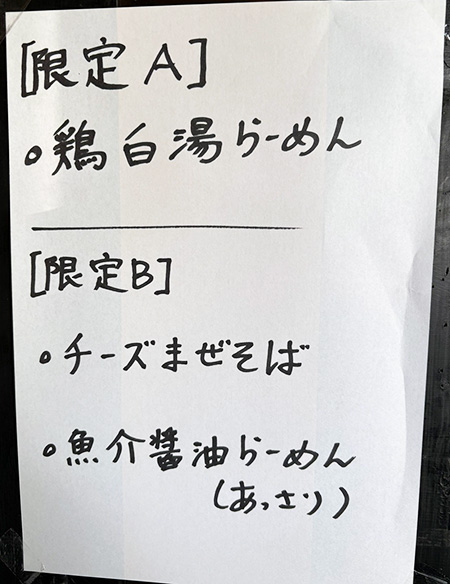 [限定 A]
・鶏白湯らーめん
[限定B]
・チーズまぜそば
・魚介醤油らーめん
(あっさり)